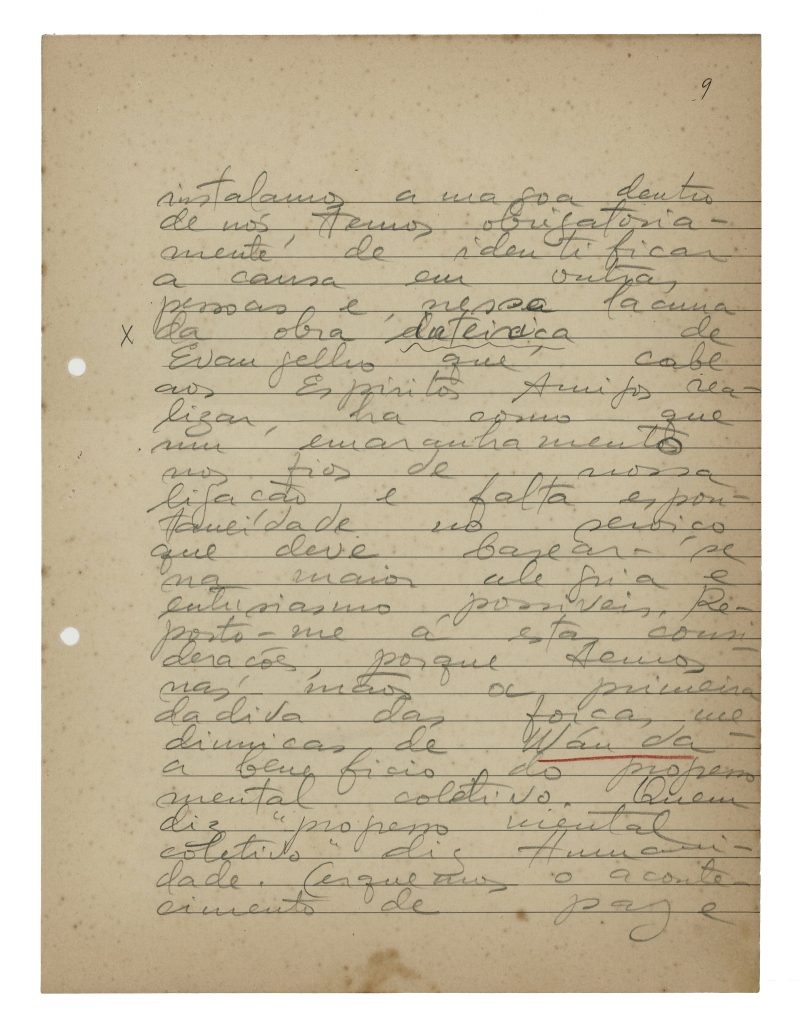 9
instalamos a magoa dentro
de nós, temos obrigatória-
mente de identificar
a causa em outras
pessoas e, nessa lacuna
X da obra de
Evangelho que cabe
aos Espiritos Amigos rea-
lizar, ha como que
um emaranhamento
nos fios de nossa
ligação e falta espon-
taneidade no serviço
que deve basear-se
na maior alegria e
entusiasmo possiveis. Re-
porto-me á estas consi-
derações, porque temos
nas mãos a primeira
dadiva das forças me
diunicas de Wánda
a beneficio do progresso
mental coletivo. Quem
diz "progresso mental
coletivo" diz Humani-
dade. Cerquemos o aconte-
cimento de paz e